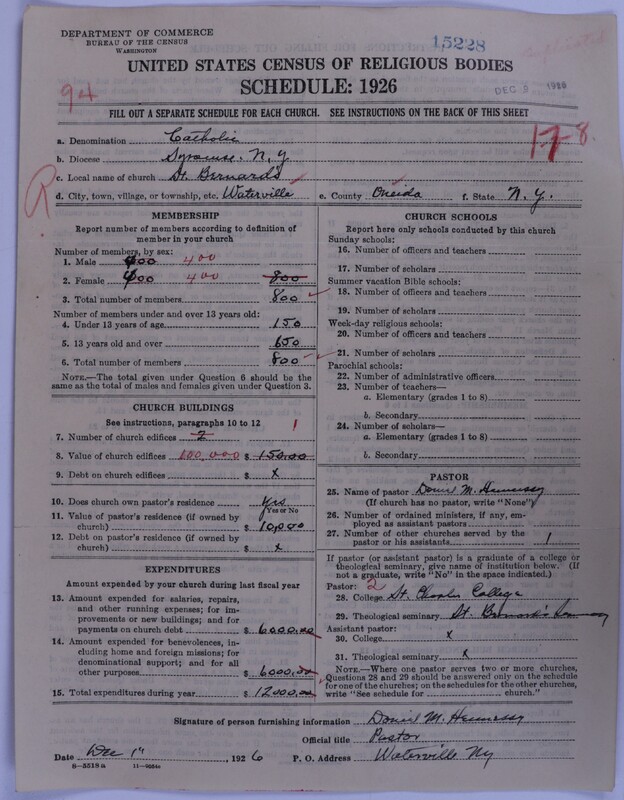 DEPARTMENT OF COMMERCE
BUREAU OF THE CENSUS
WASHINGTON
15228
UNITED STATES CENSUS OF RELIGIOUS BODIES
SCHEDULE: 1926
94
DEC 1926
FILL OUT A SEPARATE SCHEDULE FOR EACH CHURCH. SEE INSTRUCTIONS ON THE BACK OF THIS SHEET
17-8
a. Denomination Catholic
b. Diocese Syracuse, N. Y.
c. Local name of church St. Bernard's
d. City, town, village, or township, etc. Waterville e. County Oneida f. State N. Y.
MEMBERSHIP
Report number of members according to definition of
member in your church
Number of members, by sex:
1. Male 400 400
2. Female 400 400 800
3. Total number of members 800
Number of members under and over 13 years old:
4. Under 13 years of age 150
5. 13 years old and over 650
6. Total number of members 800
NOTE.—The total given under Question 6 should be the
same as the total of males and females given under Question 3.
CHURCH BUILDINGS
See instructions, paragraphs 10 to 12 1
7. Number of church edifices 2
8. Value of church edifices 100,000 $ 150.00
9. Debt on church edifices $ x
10. Does church own pastor's residence Yes
Yes or No
11. Value of pastor's residence (if owned by
church) $ 10,000
12. Debt on pastor's residence (if owned by
church) $ x
EXPENDITURES
Amount expended by your church during last fiscal year
13. Amount expended for salaries, repairs,
and other running expenses; for im-
provements or new buildings; and for
payments on church debt $ 6000.00
14. Amount expended for benevolences, in-
cluding home and foreign missions; for
denominational support; and for all
other purposes $ 6000.00
15. Total expenditures during year $ 12000.00
CHURCH SCHOOLS
Report here only schools conducted by this church
Sunday schools:
16. Number of officers and teachers
17. Number of scholars
Summer vacation Bible schools:
18. Number of officers and teachers
19. Number of scholars
Week-day religious schools:
20. Number of officers and teachers
21. Number of scholars
Parochial schools:
22. Number of administrative officers
23. Number of teachers—
a. Elementary (grades 1 to 8)
b. Secondary
24. Number of scholars—
a. Elementary (grades 1 to 8)
b. Secondary
PASTOR
25. Name of pastor Daniel M. Hennessy
(If church has no pastor, write "None")
26. Number of ordained ministers, if any, em-
ployed as assistant pastors
27. Number of other churches served by the
pastor or his assistants 1
If pastor (or assistant pastor) is a graduate of a college or
theological seminary, give name of institution below. (If
not a graduate, write "No" in the space indicated.)
Pastor: 2
28. College St. Charles College
29. Theological seminary St. Bernard's Seminary
Assistant pastor:
30. College x
31. Theological seminary x
NOTE.—Where one pastor serves two or more churches,
Questions 28 and 29 should be answered only on the schedule
for one of the churches; on the schedules for the other churches,
write "See schedule for church."
Signature of person furnishing information Daniel M. Hennessy
Official title Pastor
Date Dec 1st, 1926 P. O. Address Waterville Ny
8-5518a